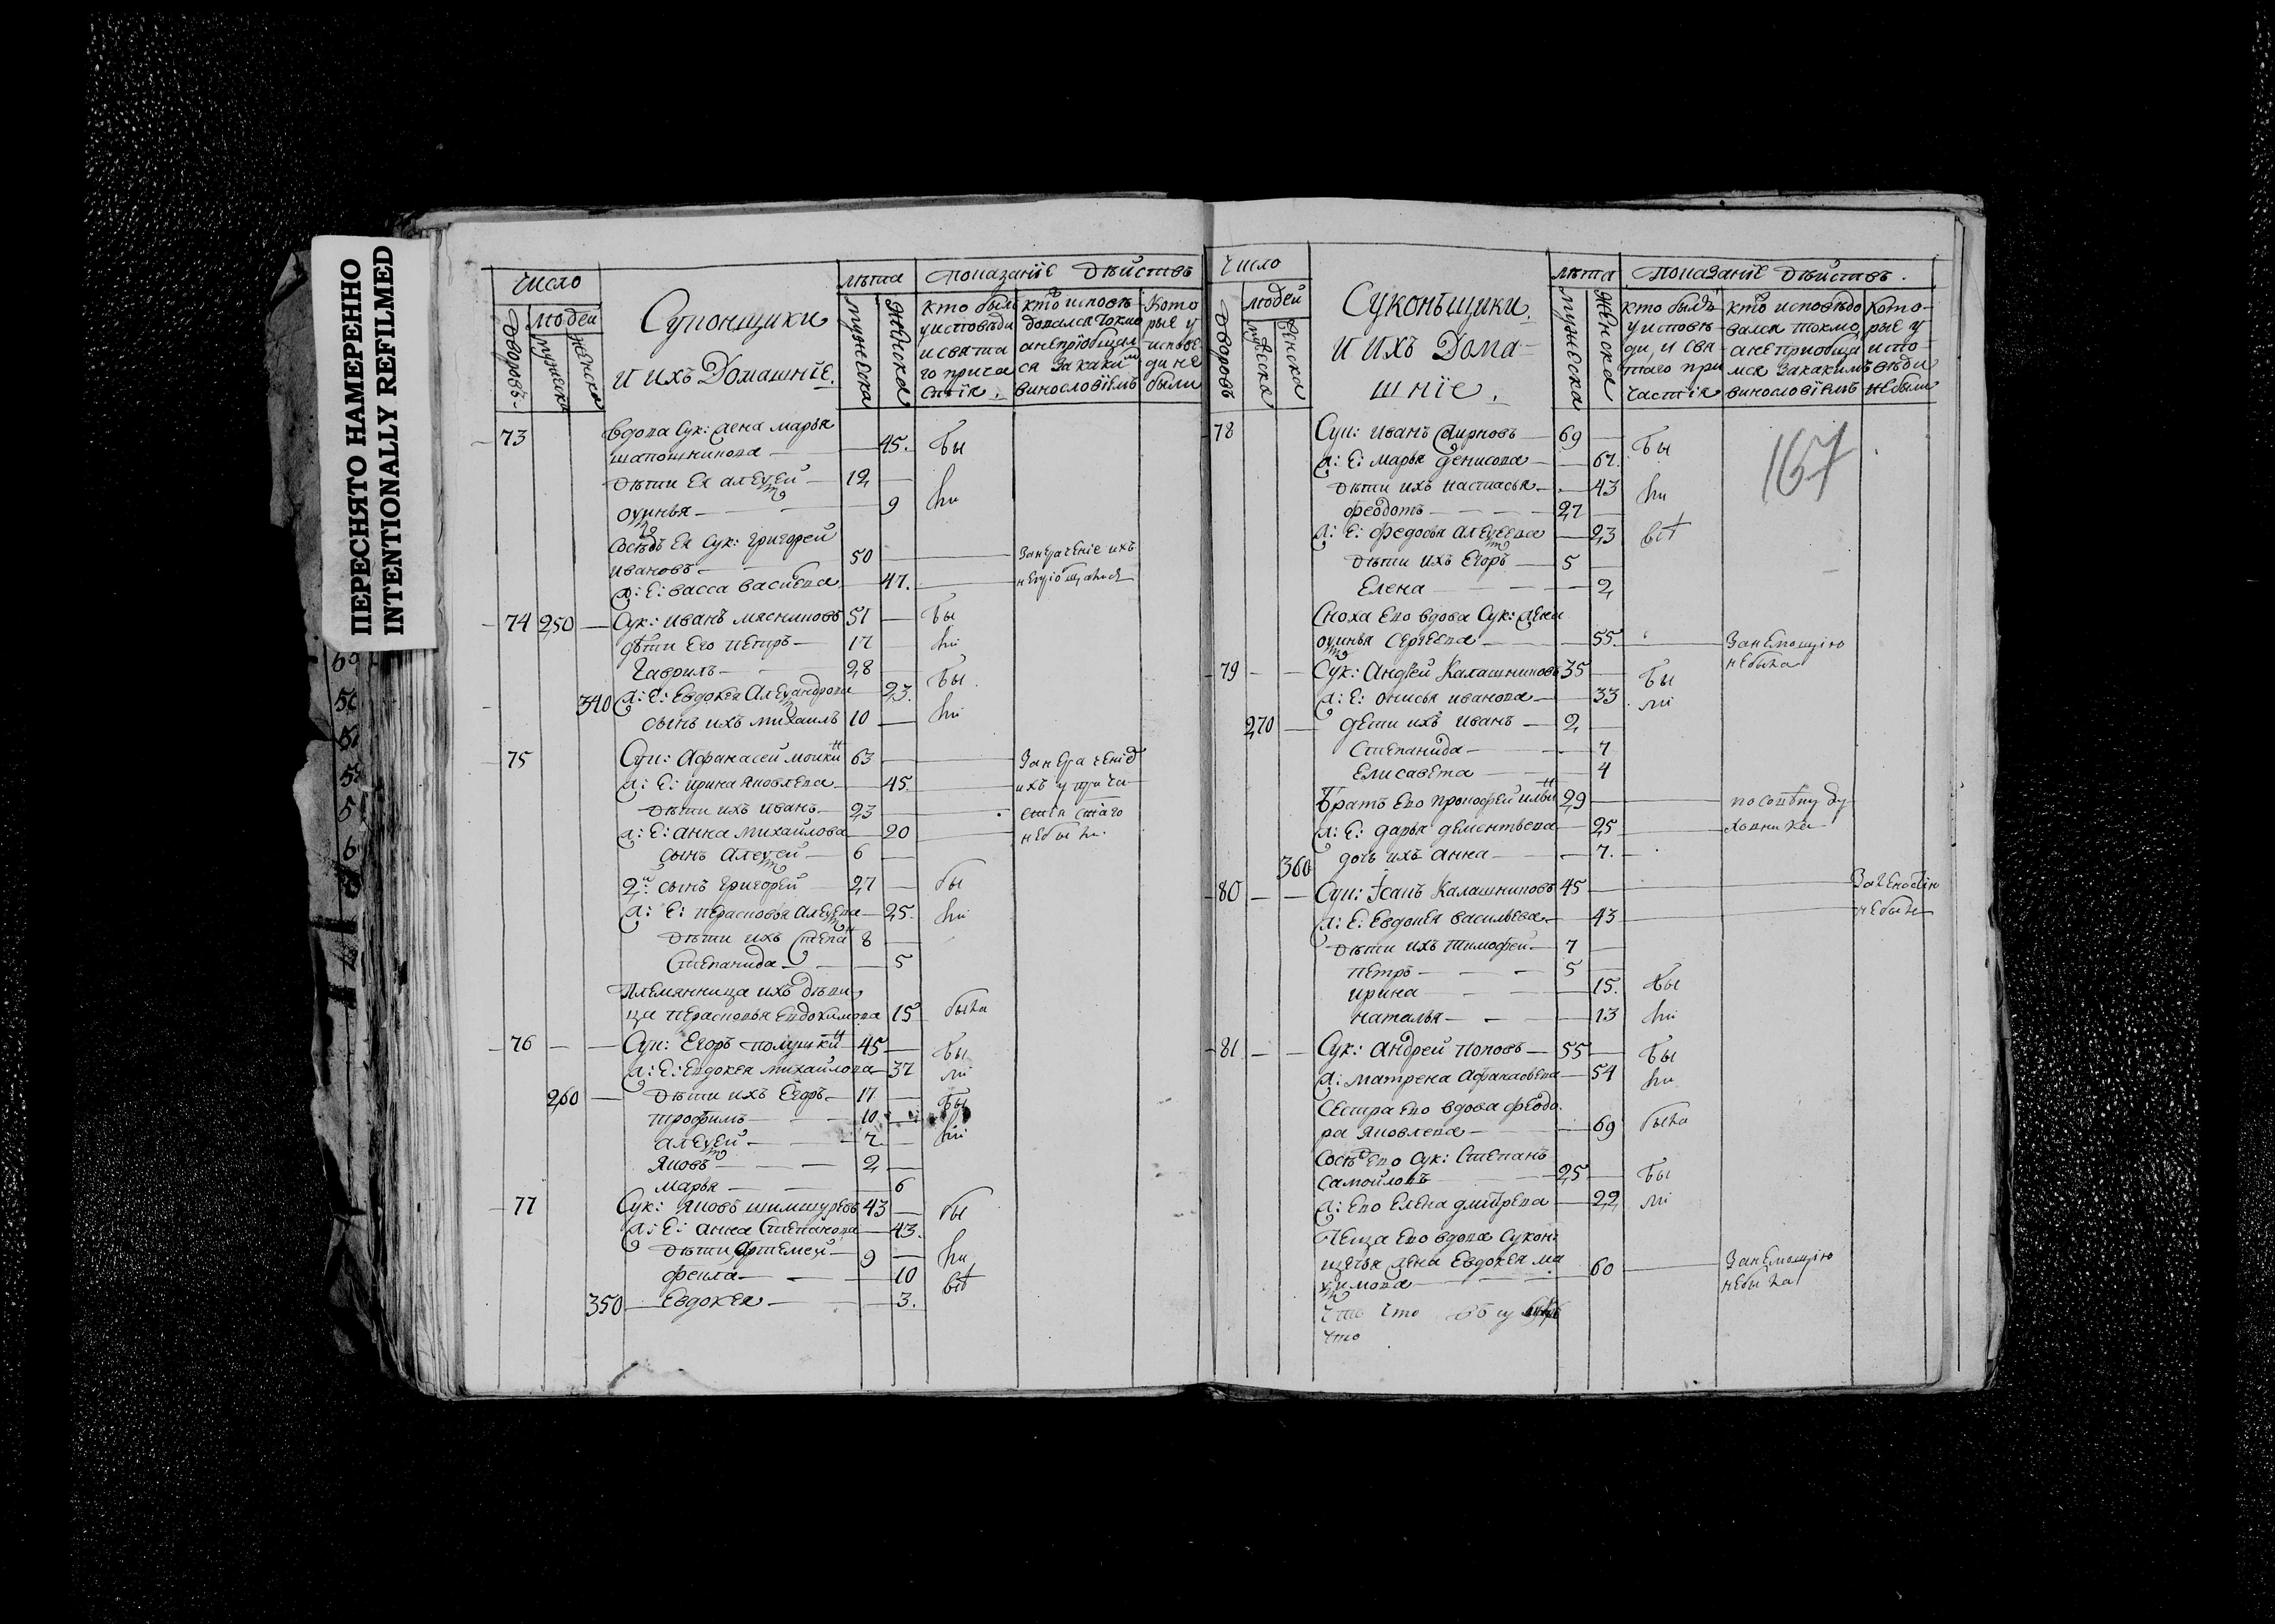 ПЕРЕСНЯТО НАМЕРЕННО
INTENTIONALLY REFILMED
число
Дворовъ
людей
мужеска
женска
Суконщики
и ихъ Домашнïе.
лѣта
мужеска
женска
показанïе дѣйствъ
кто былъ у исповѣди и свята го прича стïя.
кто исповѣ довался токмо а не прïобщал ся и за каким винословïемъ
кото рые у исповѣ ди не были
73 вдова сук: жена марья
шапошникова 45. бы
дѣти ея алеѯей 12
ѯинья 9 ли
сосѣдъ ея сук: григорей
ивановъ 50
ж: е: васса васильева 47.
74 250 Сук: иванъ мясниковъ 51 бы
дѣти его петръ 17 ли
гаврилъ 28
340 ж: е: евдокея алеѯандрова 23. бы
сынъ ихъ михаилъ 10 ли
75 Сук: афанасей 63
ж: е: ирина яковлева 45.
дѣти ихъ иванъ 23
ж: е: анна михайлова 20 не были
сынъ алеѯей 6
2й сынъ григорей 27 бы
ж: е: перасковья алеѯеева 25. ли
дѣти ихъ степанъ 8
степанида 5
племянница ихъ дѣви
ца перасковья евдокимова 15 была
76 Сук: егоръ полушкинъ 45 бы
ж: е: евдокея михайлова 37 ли
260 дѣти ихъ егоръ 17 бы
трофимъ 10
алеѯей 7 ли
яковъ 2
марья 6
77 Сук: яковъ шимшуревъ 43 бы
ж: е: анна степанова 43.
дѣти артемей 9 ли
фекла 10
350 евдокея 3.
число
Дворовъ
людей
мужеска
женска
Суконьщики.
и ихъ Дома
шнïе.
лѣта
мужеска
женска
показанïе дѣйствъ.
кто былъ у исповѣ ди, и свя таго при частïя
кто исповѣдо вался токмо а не приобща лся и за какимъ винословïемъ
кото рые у испо вѣди не были
167
78 Сук: иванъ смирновъ 69 бы
ж: е: марья денисова 67.
дѣти ихъ настасья 43 ли
феодотъ 27
ж: е: федосья алеѯеева 23
дѣти ихъ егоръ 5
елена 2
сноха его вдова сук: жена
ѯинья сергеева 55. за немощïю
не была
79 Сук: андрей калашниковъ 35 бы
ж: е: онисья иванова 33 ли
270 дети ихъ иванъ 2
степанида 7
елисавета 4
братъ его прокофей ильинъ 29 по совѣту ду
ж: е: дарья дементьева 25 ховника
360 дочь ихъ анна 7.
80 Сук: исакъ калашниковъ 45
ж: е: евдокея васильева 43 не были
дѣти ихъ тимофей 7
петръ 5
ирина 15. бы
наталья 13 ли
81 Сук: андрей поповъ 55 бы
ж: матрена афанасьева 54 ли
сестра его вдова феодо
ра яковлева 69 была
сосѣдъ его сук: степанъ
самойловъ 25 бы
ж: его елена дмитрева 22 ли
теща его вдова сукон
щечья жена евдокея ма
ѯимова 60 за немощïю
не была
что
что